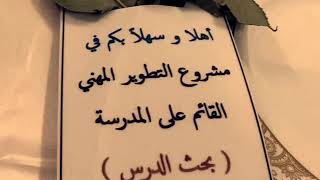 أهلا و سهلاً بكم في
مشروع التطوير المهني
القائم على المدرسة
( بحث الدرس )